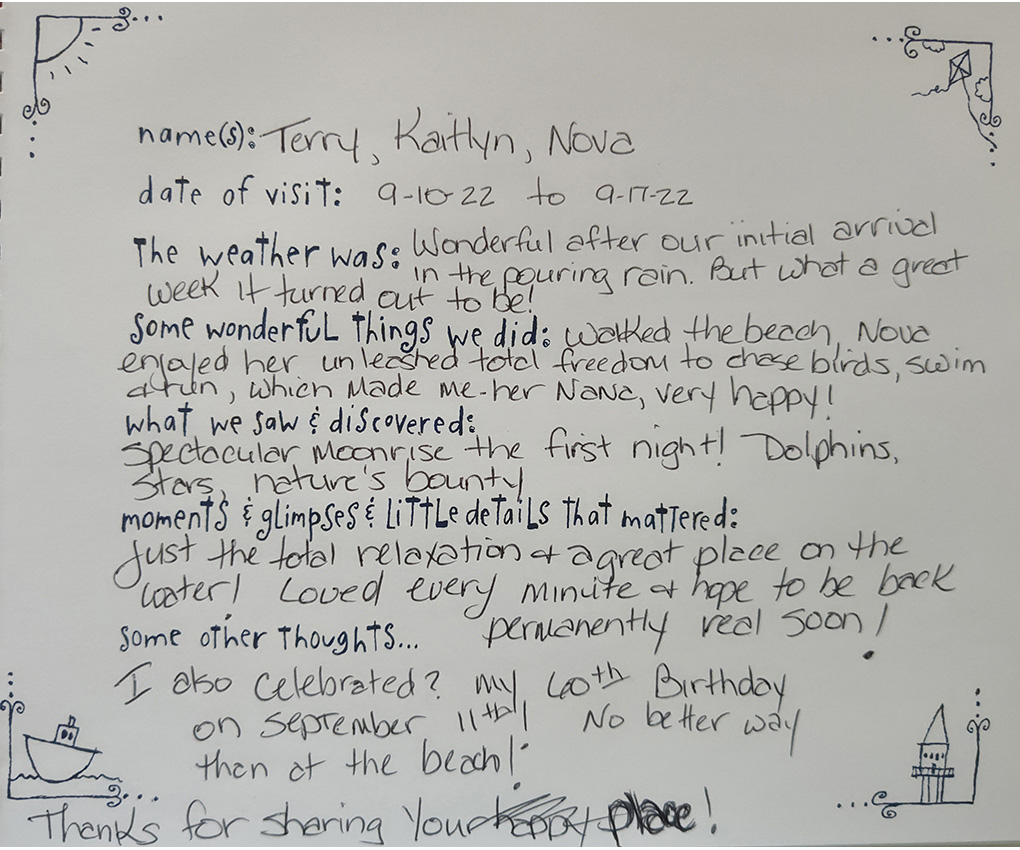 name(s): Terry, Kaitlyn, Nova
date of visit: 9-10-22 to 9-17-22
The weather was: Wonderful after our initial arrival
in the pouring rain. But what a great
week it turned out to be!
Some wonderful things we did: walked the beach, Nova
enjoyed her unleashed total freedom to chase birds, swim
& run, which made me-her Nana, very happy!
what we saw & discovered:
Spectacular Moonrise the first night! Dolphins,
Stars, nature's bounty
moments & glimpses & little details that mattered:
Just the total relaxation & a great place on the
water! Loved every minute & hope to be back
permanently real soon!
some other thoughts...
I also celebrated? my 60th Birthday
on September 11th! No better way
than at the beach!
Thanks for sharing your happy place!